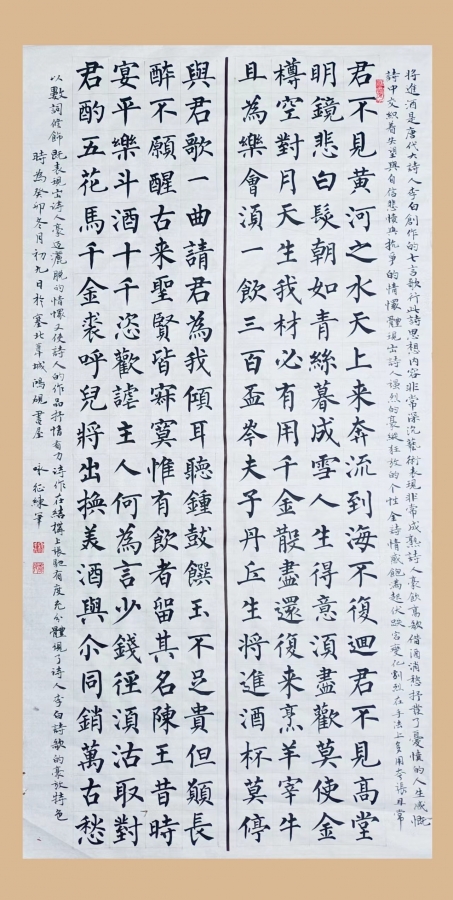 將進酒是唐代大詩人李白創作的七言歌行此詩思想內容非常深沉藝術表現非常成熟詩人豪飲高歌借酒消愁抒發了憂憤的人生感慨
詩中交織着失望與自信悲憤與抗爭的情懷體現出詩人强烈的豪縱狂放的个性全詩情感飽滿起伏跌宕變化劇烈在手法上多用夸張且常
君不見黃河之水天上來奔流到海不復迴君不見高堂
明鏡悲白髮朝如青絲暮成雪人生得意須盡歡莫使金
樽空對月天生我材必有用千金散盡還復來烹羊宰牛
且為樂會須一飲三百盃岑夫子丹丘生將進酒杯莫停
與君歌一曲請君為我傾耳聽鍾鼓饌玉不足貴但願長
醉不願醒古來聖賢皆寂寞惟有飲者留其名陳王昔時
宴平樂斗酒十千恣歡謔主人何為言少錢徑須沽取對
君酌五花馬千金裘呼兒將出換美酒與尔同銷萬古愁
以數詞修飾既表現出詩人豪迈灑脫的情懷又使詩人的作品抒情有力詩作在結構上張馳有度充分體現了詩人李白詩歌的豪放特色
時為癸卯冬月初九日於塞北阜城鴻硯書屋 征練筆